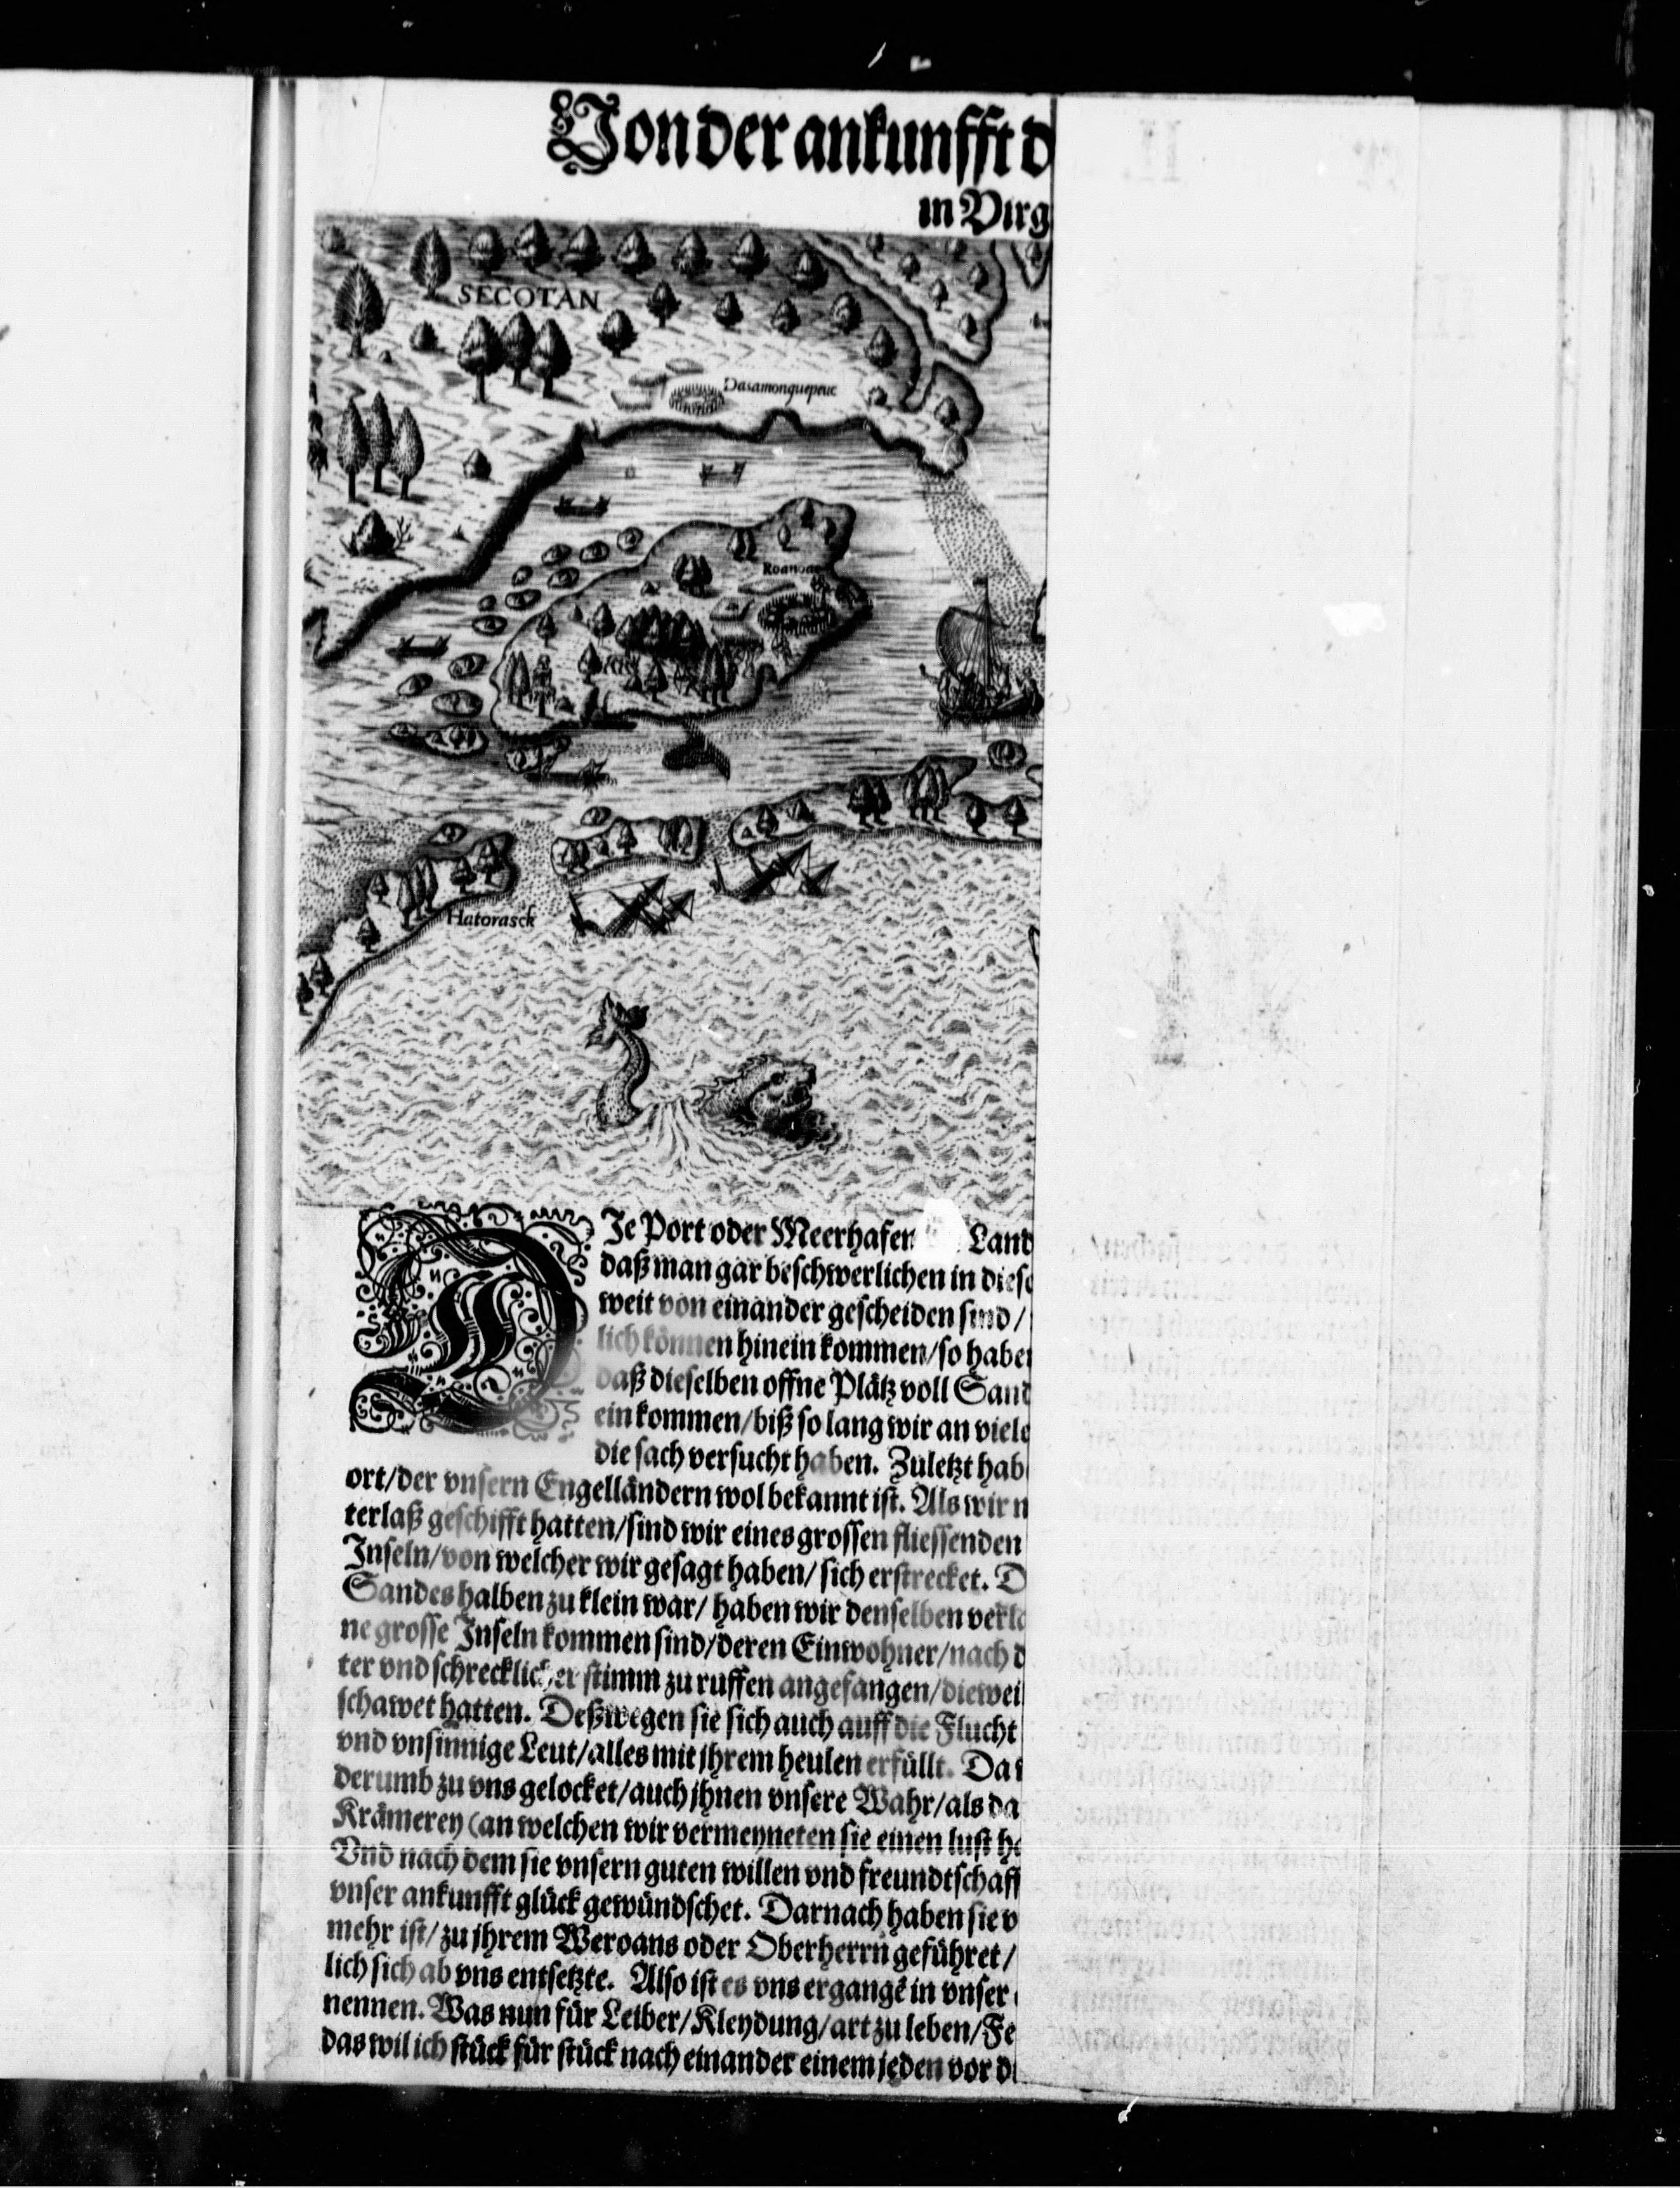 Von der ankunfft d
in Virg
SECOTAN
Dasamonquepeuc
Roanoac
Hatorasck
DJe Port oder Meerhafen Land
daß man gar beschwerlichen in diese
weit von einander gescheiden sind/
lich können hinein kommen/so haben
daß dieselben offne Plätz voll Sand
ein kommen/biß so lang wir an viele
die sach versucht haben. Zuletzt hab
ort/der vnsern Engelländern wol bekannt ist. Als wir n
terlaß geschifft hatten/sind wir eines grossen fliessenden
Jnseln/von welcher wir gesagt haben/sich erstrecket. D
Sandes halben zu klein war/ haben wir denselben verlo
ne grosse Jnseln kommen sind/deren Einwohner/nach d
ter vnd schrecklicher stimm zu ruffen angefangen/diewei
schawet hatten. Deßwegen sie sich auch auff die Flucht
vnd vnsinnige Leut/alles mit jhrem heulen erfüllt. Da
derumb zu vns gelocket/auch jhnen vnsere Wahr/als da
Krämerey (an welchen wir vermeyneten sie einen lust h
Vnd nach dem sie vnsern guten willen vnd freundtschaff
vnser ankunfft glück gewündschet. Darnach haben sie v
mehr ist/ zu jhrem Weroans oder Oberherrn geführet/
lich sich ab vns entsetzte. Also ist es vns ergangẽ in vnser
nennen. Was nun für Leiber/Kleydung/art zu leben/Fe
das wil ich stück für stück nach einander einem jeden vor d